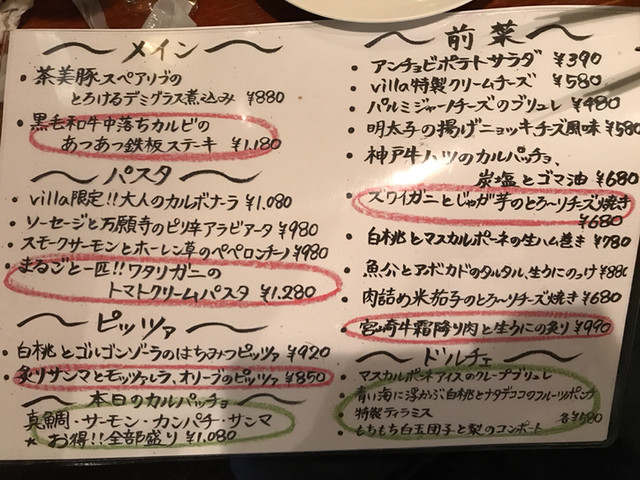 メイン
・茶美豚スペアリブの
とろけるデミグラス煮込み ¥880
・黒毛和牛中落ちカルビの
あつあつ鉄板ステーキ ¥1,180
パスタ
・villa限定!!大人のカルボナーラ ¥1,080
・ソーセージと万願寺のピリ辛アラビアータ ¥980
・スモークサーモンとホーレン草のペペロンチーノ ¥980
・まるごと一匹!!ワタリガニの
トマトクリームパスタ ¥1,280
ピッツァ
・白桃とゴルゴンゾーラのはちみつピッツァ ¥920
・炙りサンマとモッツァレラ、オリーブのピッツァ ¥850
本日のカルパッチョ
真鯛・サーモン・カンパチ・サンマ
★ お得!!全部盛り ¥1,080
前菜
・アンチョビポテトサラダ ¥390
・villa特製クリームチーズ ¥580
・パルミジャーノチーズのブリュレ ¥480
・明太子の揚げニョッキチーズ風味 ¥580
・神戸牛ハツのカルパッチョ、
炭塩とゴマ油 ¥680
・ズワイガニとじゃが芋のとろ〜りチーズ焼き
¥680
・白桃とマスカルポーネの生ハム巻き ¥780
・魚介とアボカドのタルタル、生うにのっけ ¥880
・肉詰め米茄子のとろ〜りチーズ焼き ¥680
・宮崎牛霜降り肉と生うにの炙り ¥990
ドルチェ
・マスカルポーネアイスのクレープブリュレ
・青い海に浮かぶ白桃とナタデココのフルーツポンチ
・特製ティラミス 各¥580
・もちもち白玉団子と梨のコンポート